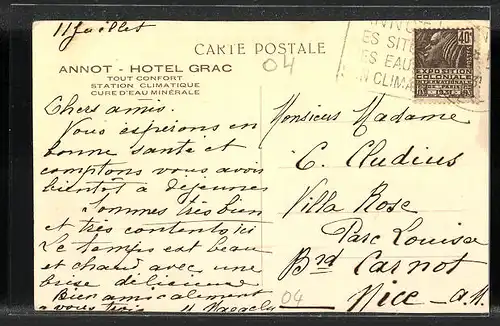 11 Juillet
CARTE POSTALE
04
ANNOT - HOTEL GRAC
TOUT CONFORT
STATION CLIMATIQUE
CURE D'EAU MINÉRALE
Chers amis.
Vous espérons en
bonne santé et
comptons vous avoir
bientôt à déjeuner
Sommes très bien
et très contents ici
Le temps est beau
et chaud avec une
brise délicieuse
Bien amicalement
à vous trois
ES SITE
ES EAU
CLIMA
40c
EXPOSITION
COLONIALE
INTERNATIONALE
Monsieur Madame
C. Cludius
Villa Rose
Parc Louisa
Brd Carnot
Nice a.M.
04